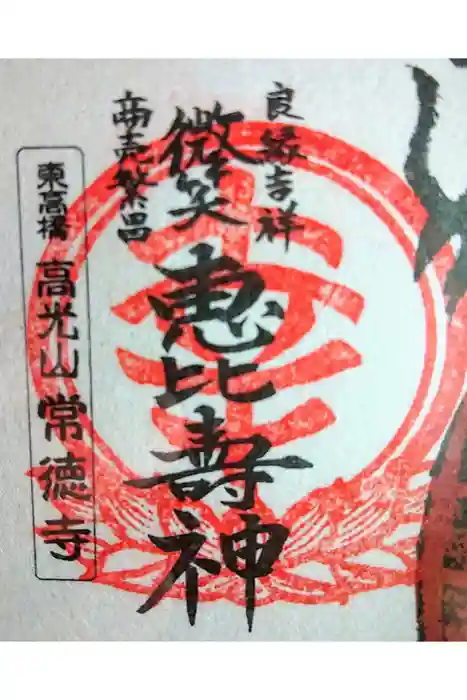 良縁吉祥
微笑
恵比寿神
商売繁昌
東高橋 高光山 常徳寺